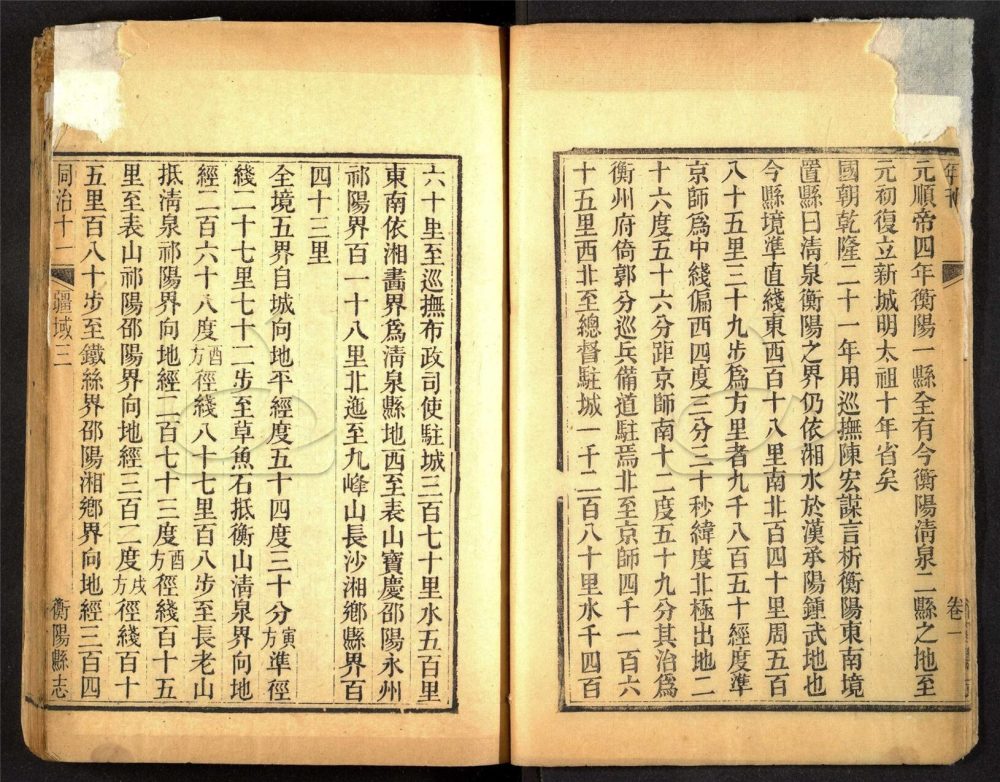 年刊
卷一
元順帝四年衡陽一縣全有今衡陽淸泉二縣之地至
元初復立新城明太祖十年省矣
國朝乾隆二十一年用巡撫陳宏謀言析衡陽東南境
置縣曰淸泉衡陽之界仍依湘水於漢承陽鍾武地也
今縣境準直綫東西百十八里南北百四十里周五百
八十五里三十九步爲方里者九千八百五十經度準
京師爲中綫偏西四度三分三十秒緯度北極出地二
十六度五十六分距京師南十二度五十九分其治爲
衡州府倚郭分巡兵備道駐焉北至京師四千一百六
十五里西北至總督駐城一千二百八十里水千四百
六十里至巡撫布政司使駐城三百七十里水五百里
東南依湘畫界爲淸泉縣地西至表山寶慶邵陽永州
祁陽界百一十八里北迤至九峰山長沙湘鄕縣界百
四十三里
全境五界自城向地平經度五十四度三十分寅方準徑
綫二十七里七十二步至草魚石抵衡山淸泉界向地
經二百六十八度酉方徑綫八十七里百八步至長老山
抵淸泉祁陽界向地經二百七十三度酉方徑綫百十五
里至表山祁陽邵陽界向地經三百二度戌方徑綫百十
五里百八十步至鐵絲界邵陽湘鄕界向地經三百四
同治十一
疆域三
衡陽縣志